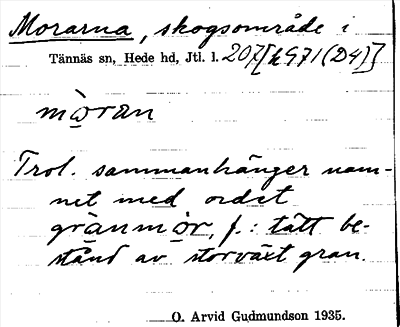 Morarna, skogsområde i
Tännäs sn, Hede hd, Jtl. l. 207[h971(D4)]
mo̲ran
Trol. sammanhänger nam-
net med ordet
grä̲nmo̲r, f.: tätt be-
stånd av storväxt gran.
O. Arvid Gudmundson 1935.